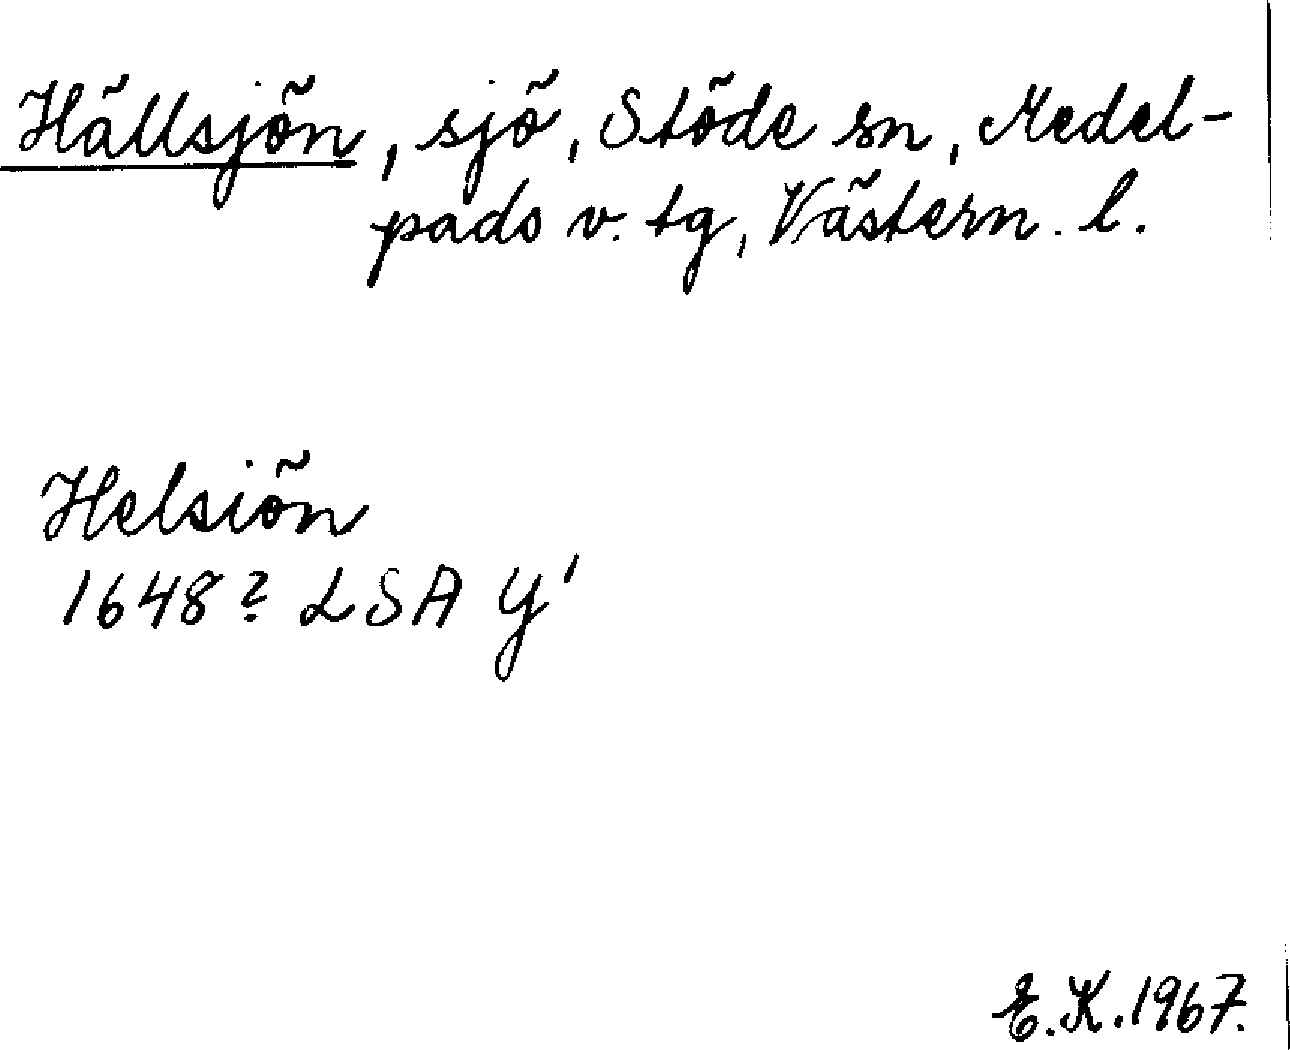 Hällsjön, sjö, Stöde sn, Medel-
pads v. tg, Västern. l.
Helsiön
1648? LSA Y'
E.K. 1967.